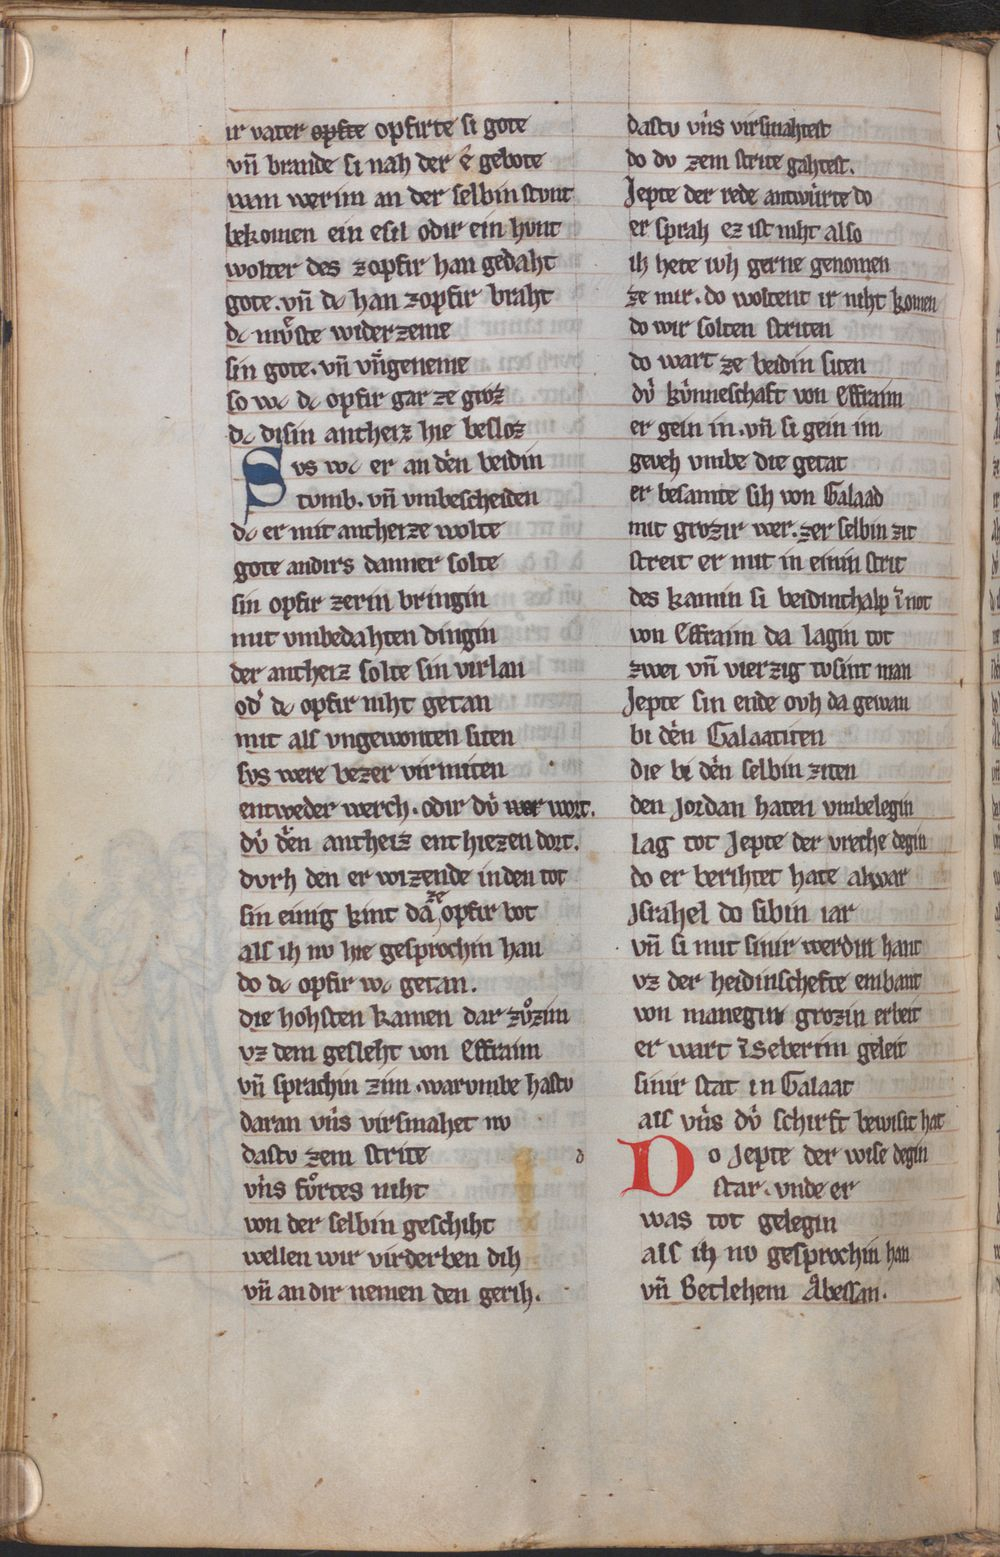 ir vater opfte opfirte si gote
vn̄ brande si nah der ê gebote
wan werim an der selbin stvnt
bekomen ein esil odir ein hvnt
wolter des zopfir han gedaht
gote. vn̄ dc han zopfir braht
dc mvͤste widerzeme
sin gote. vn̄ vn̄geneme
so wc dc opfir gar ze groz
dc disin antheiz hie besloz
Svs wc er an dēn beidin
tvmb. vn̄ vmbescheiden
dc er mit antheize wolte
gote andirs danner solte
sin opfir zerin bringin
mit vmbedahten dingin
der antheiz solte sin virlan
odˀ dc opfir niht getan
mit als vngewonten siten
svs were bezer virmiten
entweder werch. odir dv̍ wer wort.
dv̍ dēn antheiz enthiezen dort.
dvrh den er wizende inden tot
sin einig kint dā ze opfir bot
als ih nv hie gesprochin han
do dc opfir wc getan.
die hohsten kamen dar zvͦzim
vz dem gesleht von Effraim
vn̄ sprachin zim. warvmbe hastv
daran vn̍s virsmahet nv
dastv zem strite
vn̍s fvͦrtes niht
von der selbin geschiht
wellen wir virderben dih
vn̄ an dir nemen den gerih.
dastv vn̍s virsmahtest
do dv zem strite gahtest.
Jepte der rede antwu̍rte do
er sprah ez ist niht also
ih hete iwh gerne genomen
ze mir. do woltent ir niht komen
do wir solten striten
do wart ze beidin siten
dv̍ kv̍nneschaft von Effraim
er gein in. vn̄ si gein im
geveh vmbe die getat
er besamte sih von Galaad
mit grozir wer. zer selbin zit
streit er mit in einin strit
des kamin si beidinthalp ī not
von Effraim da lagin tot
zwei vn̄ vierzig tvsint man
Jepte sin ende ovh da gewan
bi dēn Galaatiten
die bi dēn selbin ziten
den Jordan haten vmbelegin
lag tot Jepte der vreche degin
do er berihtet hate alwar
Israhel do sibin iar
vn̄ si mit sinir werdin hant
vz der heidinschefte embant
von manegin grozin erbeit
er wart ī Seberim geleit
sinir stat in Galaat
als vn̍s dv̍ schirft bewisit hat
d
Do Jepte der wise degin
starˑ vnde er
was tot gelegin
als ih nv gesprochin han
vn̄ Betlehem Abessan.